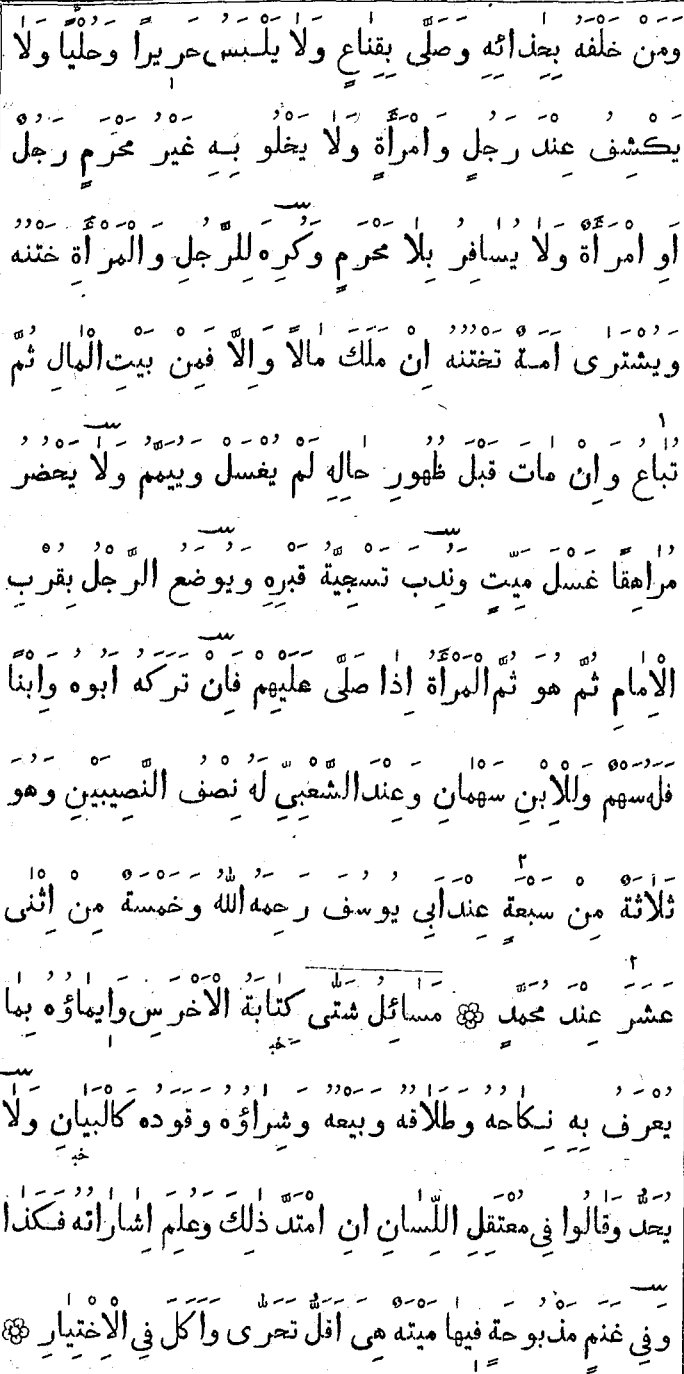 وَمَنْ خَلْفَهُ بِحِذَائِهِ وَصَلَّى بِقِنَاعٍ وَلَا يَلْبَسُ حَرِيرًا وَحُلِيًّا وَلَا
يَكْشِفُ عِنْدَ رَجُلٍ وَامْرَأَةٍ وَلَا يَخْلُو بِهِ غَيْرُ مَحْرَمٍ رَجُلٌ
اَوِ امْرَأَةٌ وَلَا يُسَافِرُ بِلَا مَحْرَمٍ وَكُرِهَ لِلرَّجُلِ وَالْمَرْأَةِ خَتْنُهُ
وَيُشْتَرٰى اَمَةٌ تَخْتِنُهُ اِنْ مَلَكَ مَالًا وَاِلَّا فَمِنْ بَيْتِ الْمَالِ ثُمَّ
تُبَاعُ وَاِنْ مَاتَ قَبْلَ ظُهُورِ حَالِهِ لَمْ يُغْسَلْ وَيُيَمَّمُ وَلَا يَحْضُرُ
مُرَاهِقًا غَسْلَ مَيِّتٍ وَنُدِبَ تَسْجِيَةُ قَبْرِهِ وَيُوضَعُ الرَّجُلُ بِقُرْبِ
الْاِمَامِ ثُمَّ هُوَ ثُمَّ الْمَرْأَةُ اِذَا صَلَّى عَلَيْهِمْ فَاِنْ تَرَكَهُ اَبُوهُ وَابْنًا
فَلَهُ سَهْمٌ وَلِلْاِبْنِ سَهْمَانِ وَعِنْدَ الشَّعْبِيِّ لَهُ نِصْفُ النَّصِيبَيْنِ وَهُوَ
ثَلَاثَةٌ مِنْ سَبْعَةٍ عِنْدَ اَبِى يُوسُفَ رَحِمَهُ اللّٰهُ وَخَمْسَةٌ مِنْ اِثْنٰى
عَشَرَ عِنْدَ مُحَمَّدٍ مَسَائِلُ شَتّٰى كِتَابَةُ الْاَخْرَسِ وَاِيمَاؤُهُ بِمَا
يُعْرَفُ بِهِ نِكَاحُهُ وَطَلَاقُهُ وَبَيْعُهُ وَشِرَاؤُهُ وَقَوَدُهُ كَالْبَيَانِ وَلَا
يُحَدُّ وَقَالُوا فِى مُعْتَقَلِ اللِّسَانِ اِنِ امْتَدَّ ذٰلِكَ وَعُلِمَ اِشَارَاتُهُ فَكَذَا
وَفِى غَنَمٍ مَذْبُوحَةٍ فِيهَا مَيْتَةٌ هِىَ اَقَلُّ تَحَرّٰى وَاَكَلَ فِى الْاِخْتِيَارِ